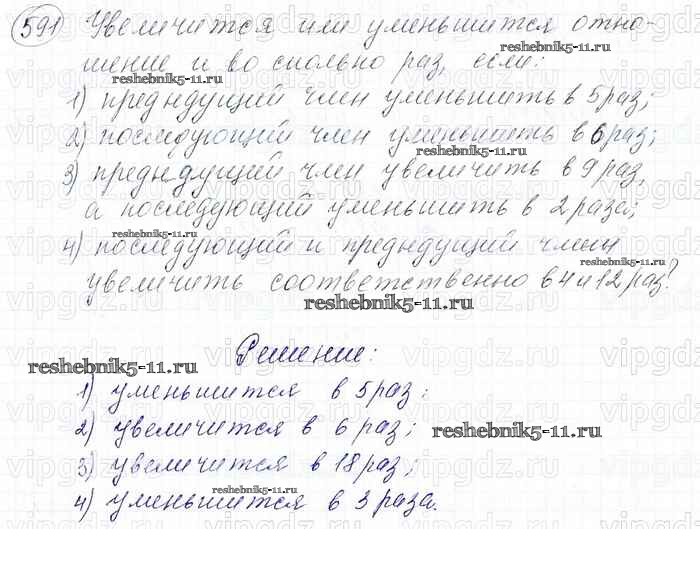 591 Увеличится или уменьшится отно-
шение и во сколько раз, если:
1) предыдущий член уменьшить в 5 раз;
2) последующий член уменьшить в 6 раз;
3) предыдущий член увеличить в 9 раз,
а последующий уменьшить в 2 раза;
4) последующий и предыдущий члены
увеличить соответственно в 4 и 12 раз?
Решение:
1) уменьшится в 5 раз;
2) увеличится в 6 раз;
3) увеличится в 18 раз;
4) уменьшится в 3 раза.
reshebnik5-11.ru
reshebnik5-11.ru
reshebnik5-11.ru
reshebnik5-11.ru
reshebnik5-11.ru
reshebnik5-11.ru
reshebnik5-11.ru
reshebnik5-11.ru
vipgdz.ru